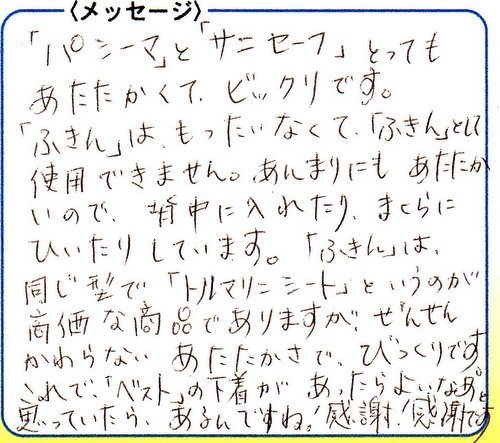 〈メッセージ〉
「パシーマ」と「サニセーフ」とっても
あたたかくて、ビックリです。
「ふきん」は、もったいなくて、「ふきん」として
使用できません。あんまりにも あたたか
いので、背中に入れたり、まくらに
ひいたりしています。「ふきん」は、
同じ型で「トルマリンシート」というのが
高価な商品でありますが、ぜんぜん
かわらない あたたかさで、びっくりです。
これで、「ベスト」の下着が あったらよいなあ。と
思っていたら、あるんですね！感謝！感謝です